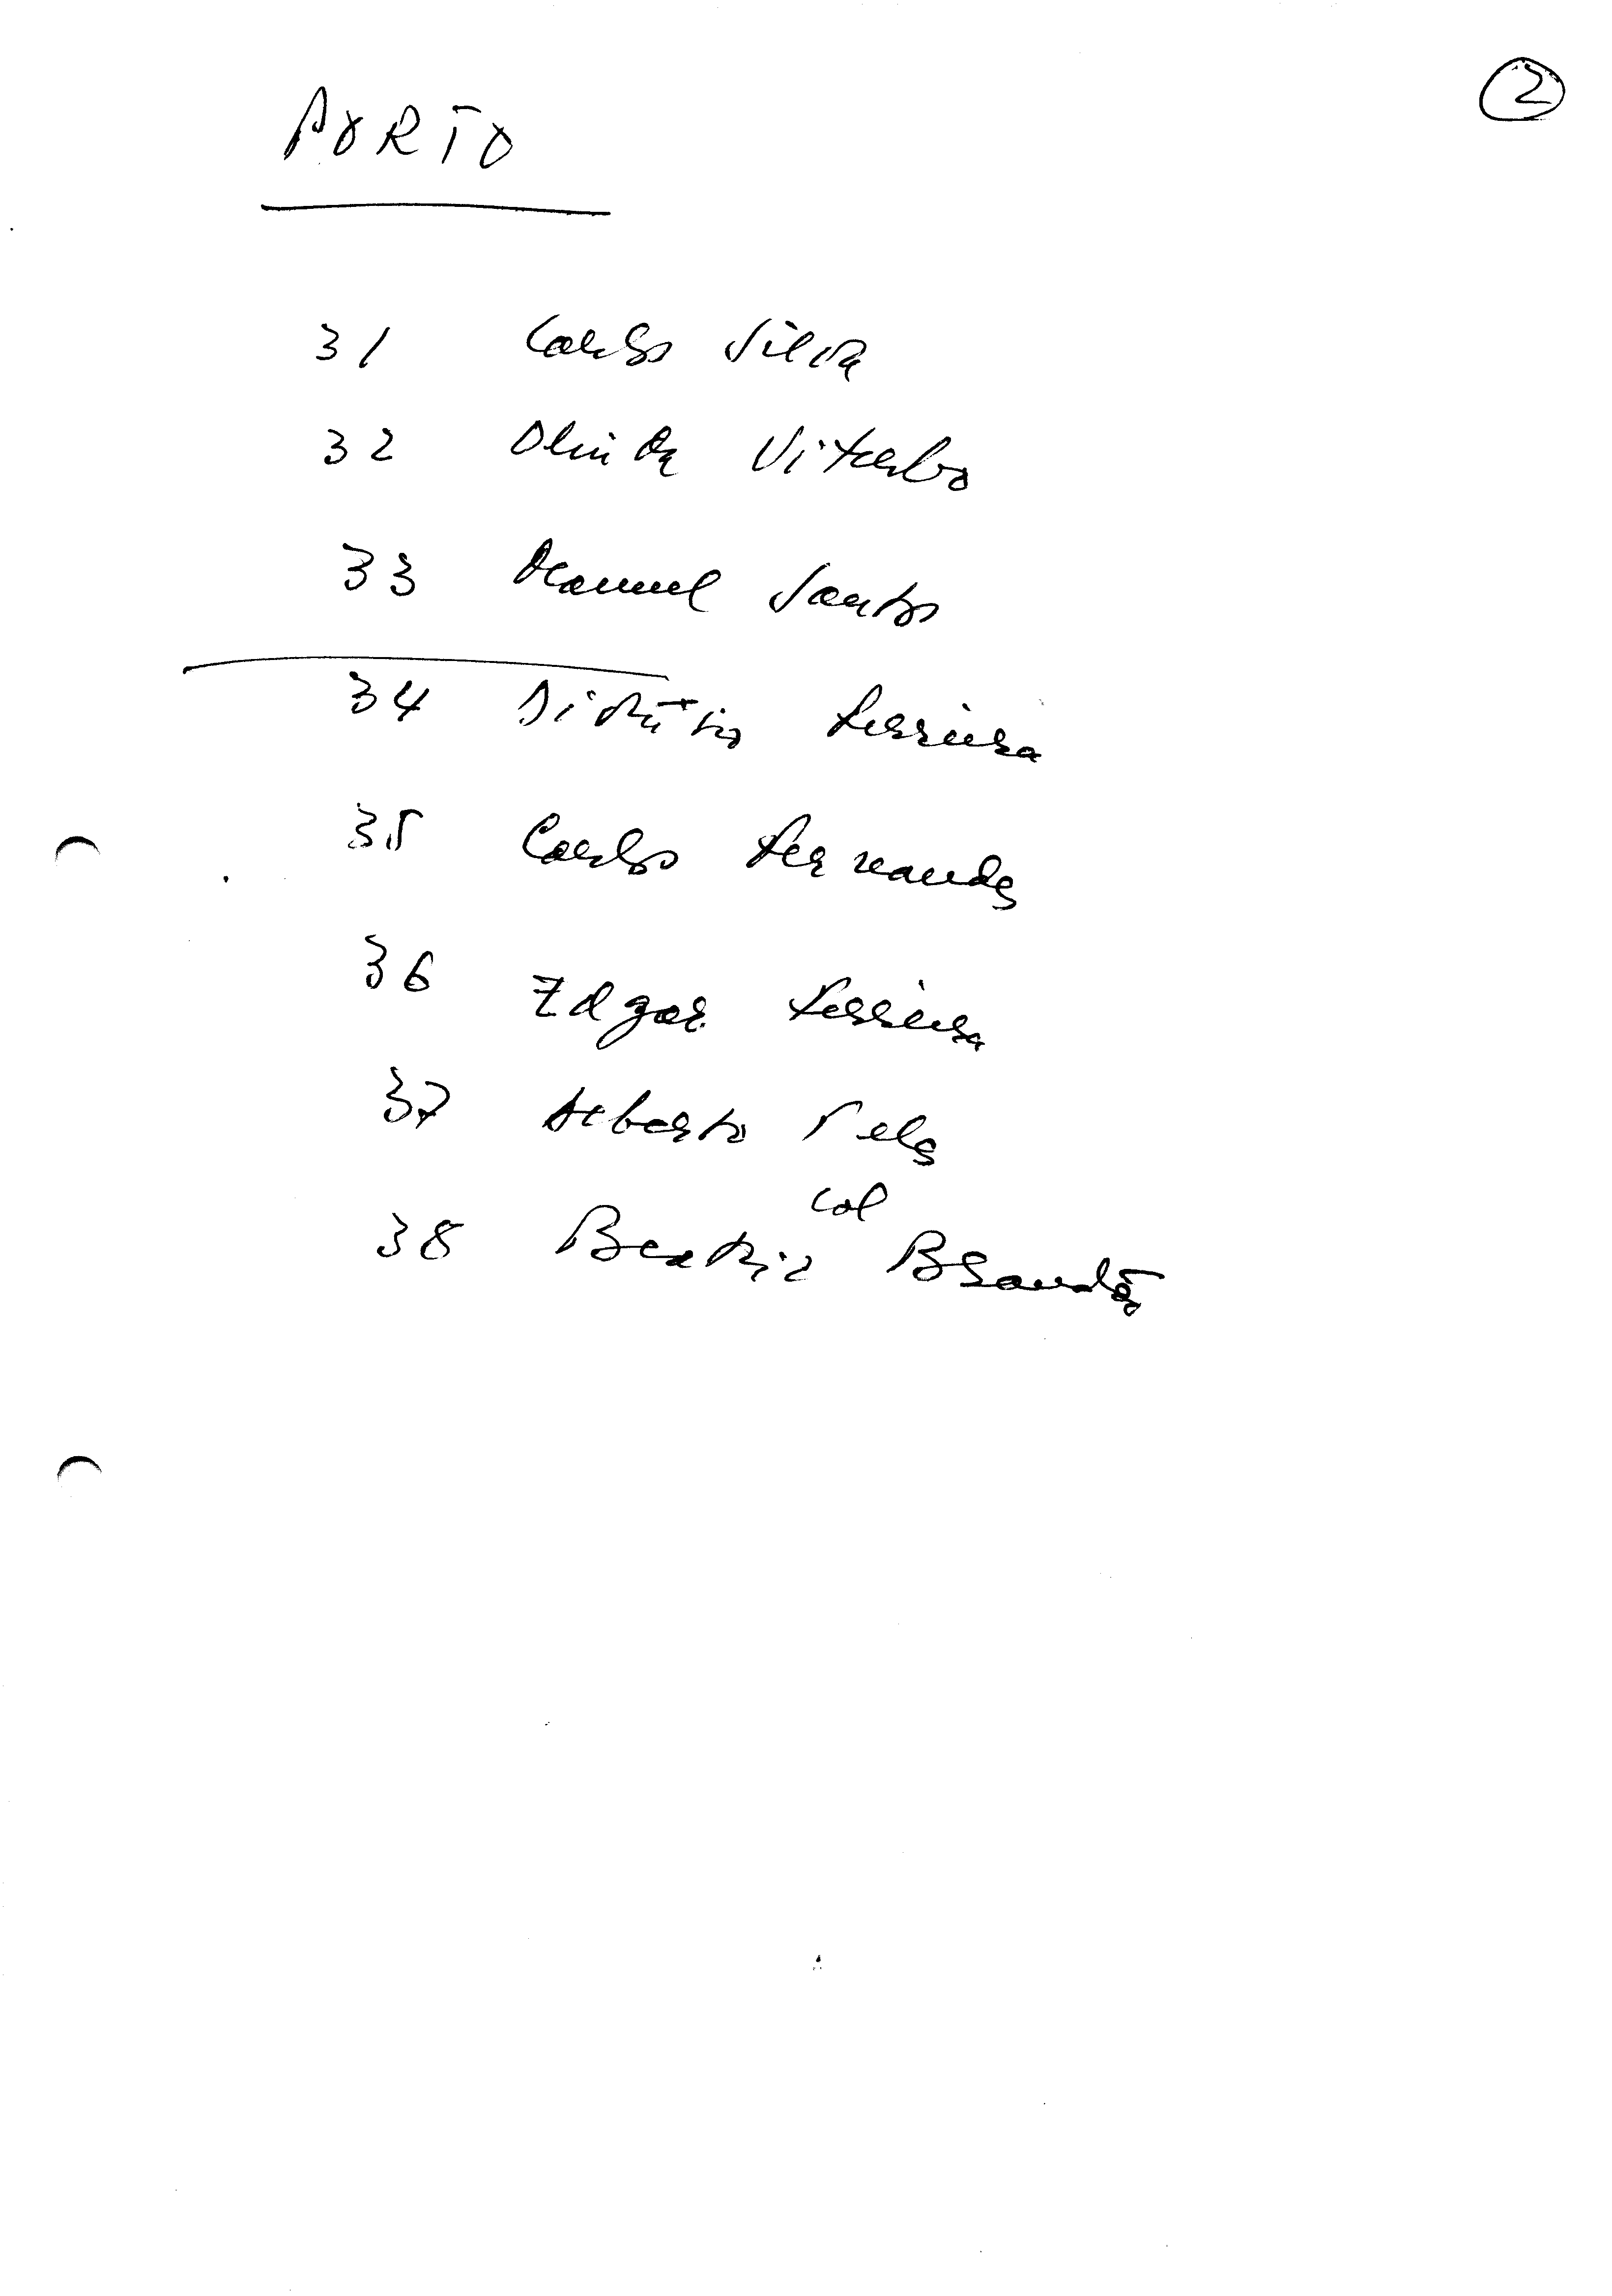 2
PORTO
31 Carlos Silva
32 Olinda Viterbo
33 Manuel Santos
34 Ferreira
35 Carlos Fernandes
36 Edgar Ferreira
37 Alberto Teles
col
38 Beatriz Brandão